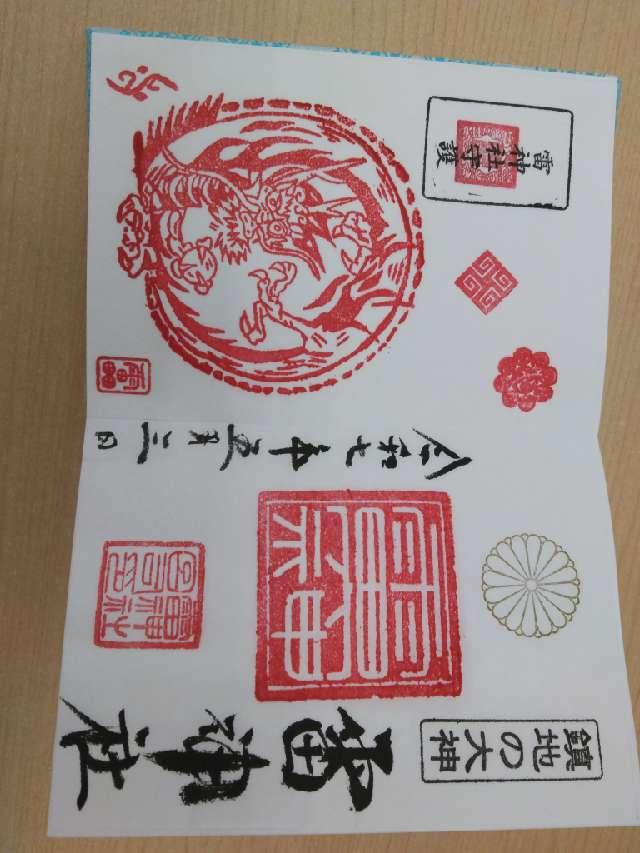 鎮地の大神
雷神社
雷神
令和七年五月三日
雷神社守護